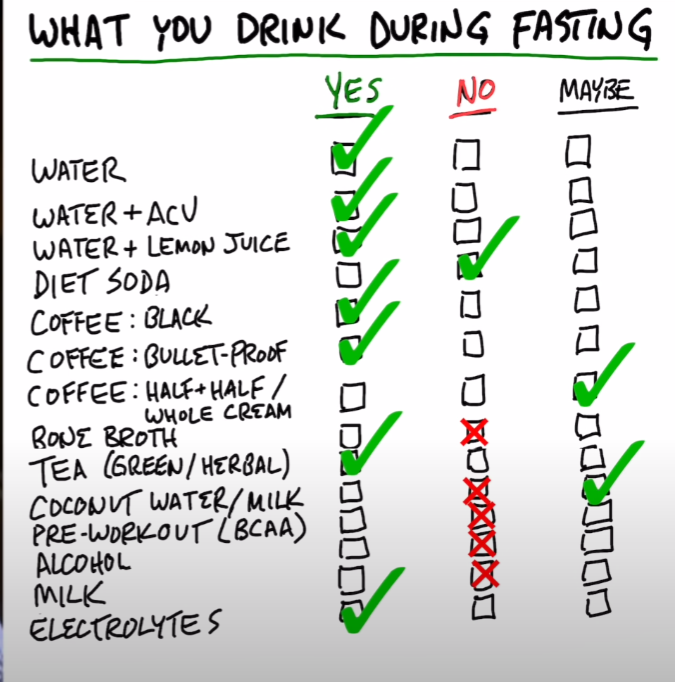 WHAT YOU DRINK DURING FASTING
YES NO MAYBE
WATER
WATER + ACV
WATER + LEMON JUICE
DIET SODA
COFFEE: BLACK
COFFEE: BULLET-PROOF
COFFEE: HALF + HALF /
WHOLE CREAM
BONE BROTH
TEA (GREEN/HERBAL)
COCONUT WATER/MILK
PRE-WORKOUT (BCAA)
ALCOHOL
MILK
ELECTROLYTES